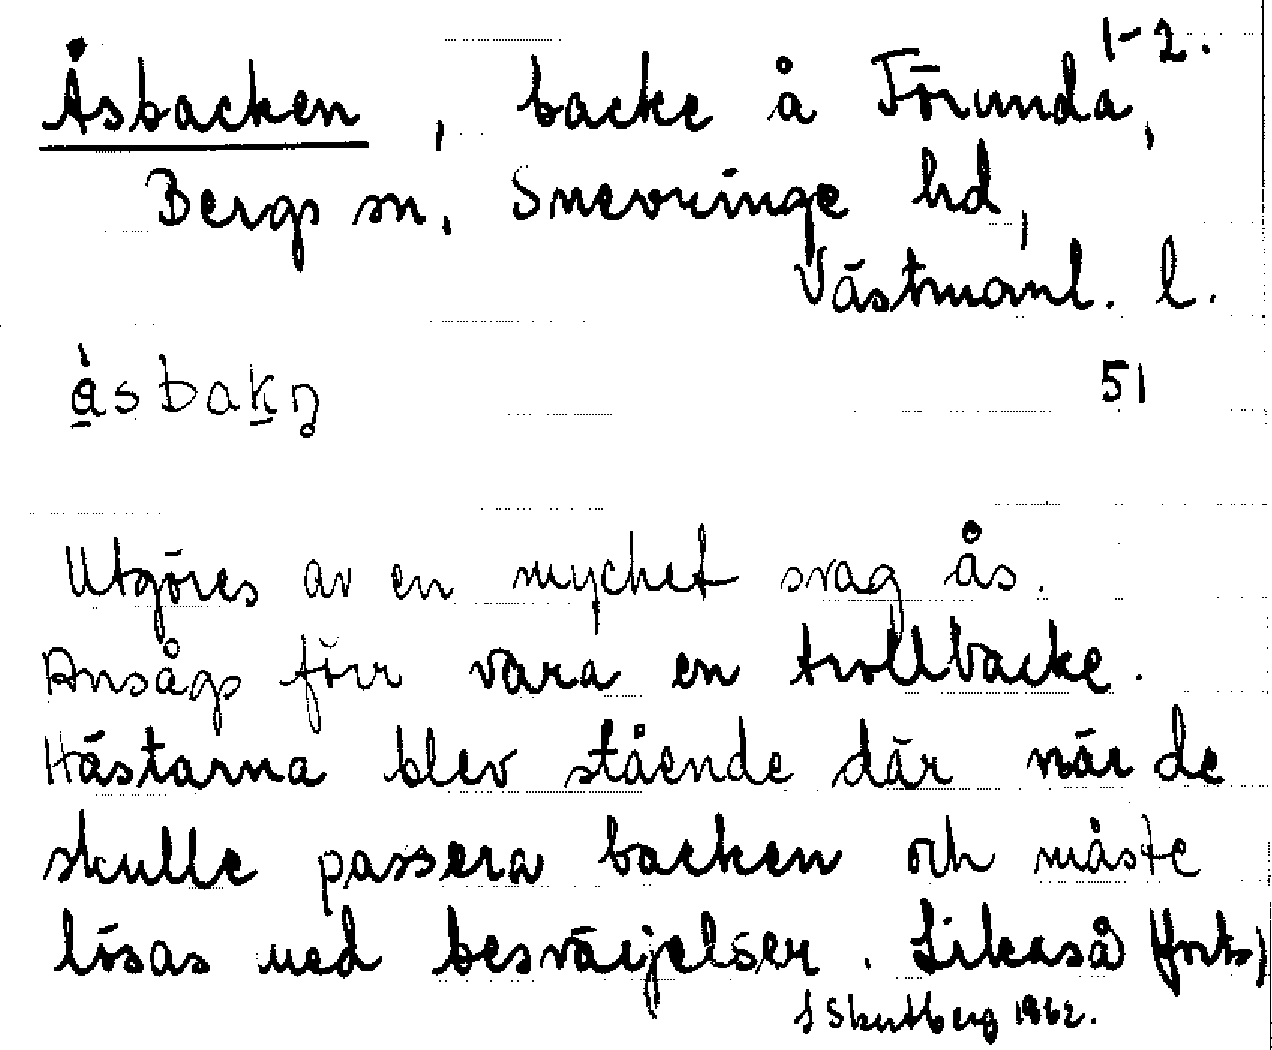 1-2.
Åsbacken, backe å Förunda,
Bergs sn, Snevringe hd,
Västmanl. l.
åsbakn̥ 51
Utgöres av en mycket svag ås.
Ansågs förr vara en trollbacke.
Hästarna blev stående där när de
skulle passera backen och måste
lösas med besvärjelser. Likaså (forts)
S Skutberg 1962.